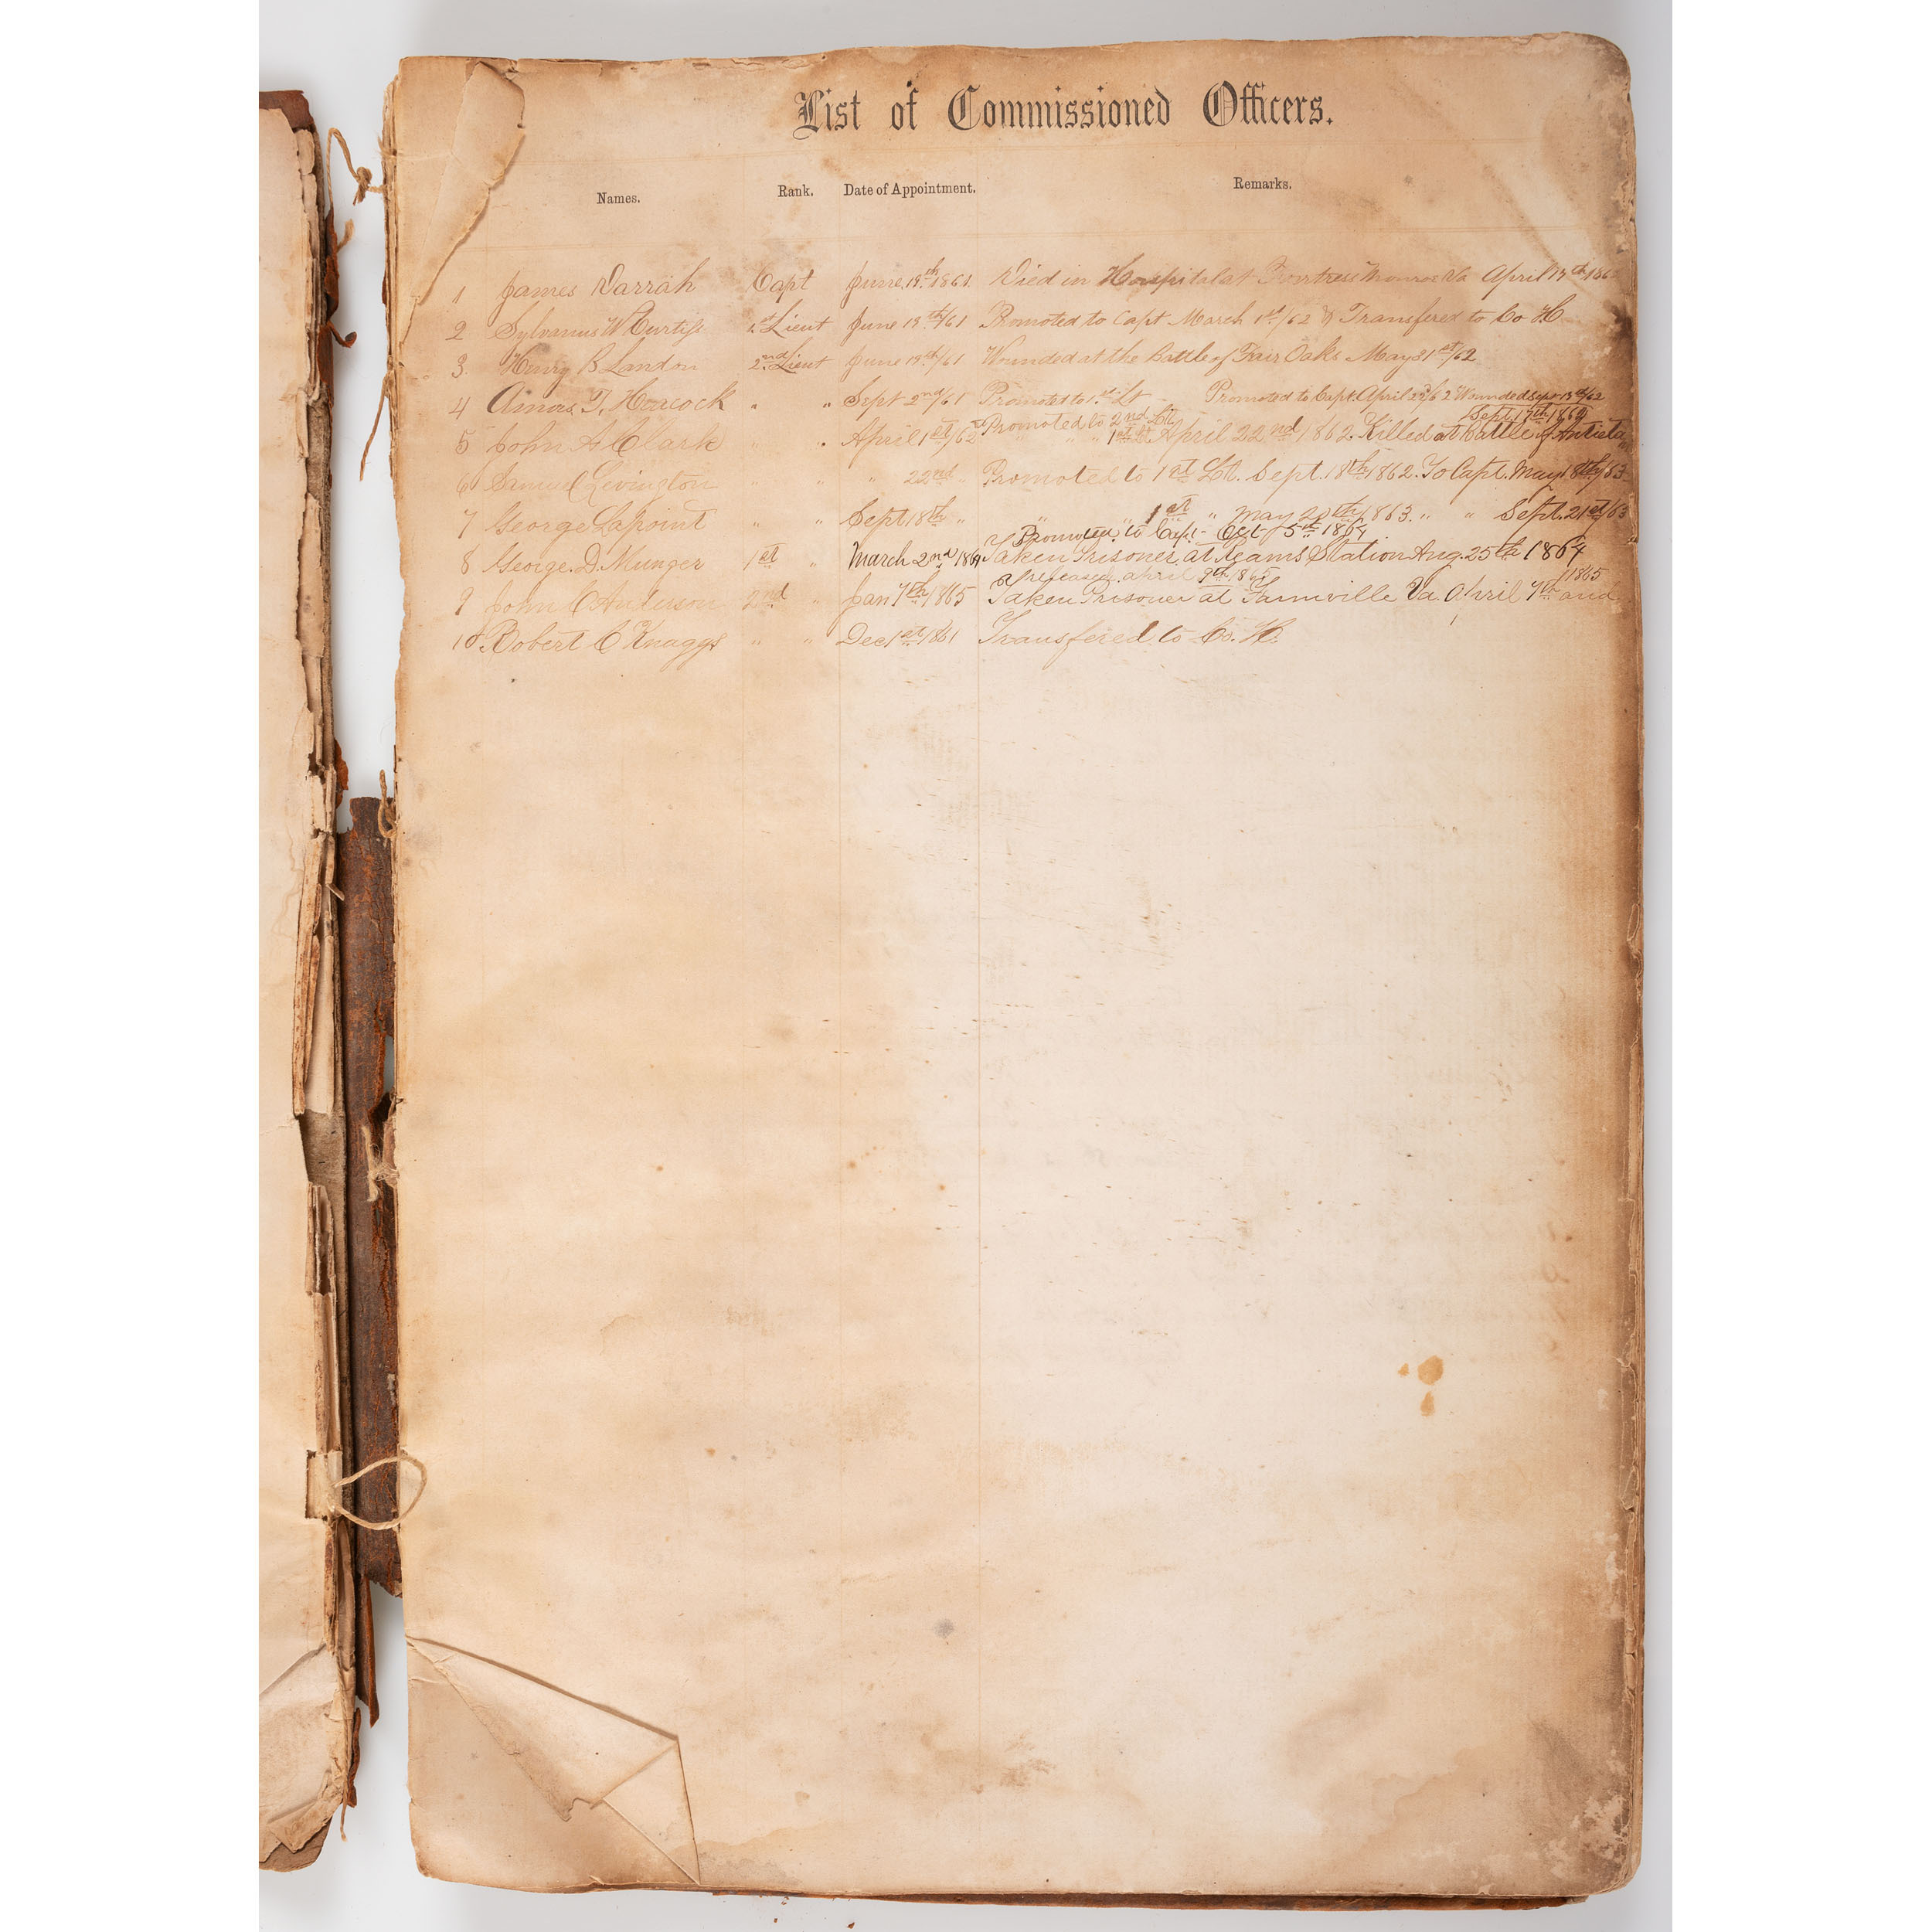 List of Commissioned Officers.
Names. Rank. Date of Appointment. Remarks.
1 James Darrah Capt June 19th 1861 Died in Hospital at Fortress Monroe Va April 19th 186
2 Sylvanus W Curtiss 1st Lieut June 19th/61 Promoted to Capt March 1st/62 & Transfered to Co H
3 Henry B Landon 2nd Lieut June 19th/61 Wounded at the Battle of Fair Oaks May 31st/62
4 Amos T, Hecocock " " Sept 2nd/61 Promoted to 1st Lt Promoted to Capt April 22d/62 Wounded Sept 13th/62
Promoted to 2nd Lt Sept 17th 1862
5 John A Clark " " April 1st/62 " " 1st Lt April 22nd 1862. Killed at battle of Antieta
6 Samuel Levington " " " 22nd " Promoted to 1st Lt. Sept. 18th 1862. To Capt. May 18th/63
7 George Lapoint " " Sept 18th " " " 1st " May 20th 1863. " " Sept. 21st/63
Promoted to Capt- Oct 5th 1864
8 George. D. Munger 1st " March 2nd 1864 Taken Prisoner at Reams Station Aug. 25th 1864
released april 9th 1865 1865
9 John C Anderson 2nd " Jan 7th 1865 Taken Prisoner at Farmville Va. April 7th and
10 Robert C Knaggs " " Dec 1st 1861 Transfered to Co. H.